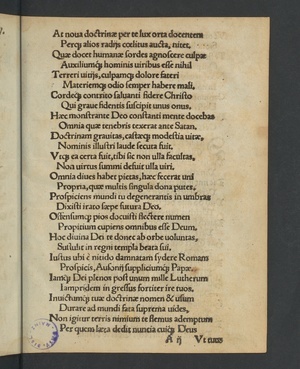 At noua doctrinæ per te lux orta docentem
Perq; alios radijs cœlitus aucta, nitet.
Quæ docet humanæ sordes agnoscere culpæ
Auxiliumq; hominis uiribus esse nihil
Terreri uitijs, culpamq; dolore fateri
Materiemq; odio semper habere mali,
Cordeq; contrito saluanti fidere Christo
Qui graue fidentis suscipit unus onus.
Hæc monstrante Deo constanti mente docebas
Omnia quæ tenebris texerat ante Satan.
Doctrinam grauitas, castæq; modestia uitæ,
Nominis illustri laude secuta fuit.
Vtq; ea certa fuit, tibi sic non ulla facultas,
Non uirtus summi defuit ulla uiri.
Omnia diues habet pietas, hæc fecerat uni
Propria, quæ multis singula dona putes.
Prospiciens mundi tu degenerantis in umbras
Dixisti irato sæpe futura Deo.
Ostensumq; pios docuisti flectere numen
Propitium cupiens omnibus esse Deum.
Hoc diuina Dei te donec ab orbe uoluntas,
Sustulit in regni templa beata sui.
Iustus ubi è nitido damnatam sydere Romam
Prospicis, Ausonij suppliciumq; Papæ.
Iamq; Dei plenos post unum mille Lutherum
Iampridem in gressus fortiter ire tuos.
Inuictumq; tuæ doctrinæ nomen & usum
Durare ad mundi fata suprema uides,
Non igitur terris nimium te flemus ademptum
Per quem læta dedit nuncia cuiq; Deus
A ij Vt tuos